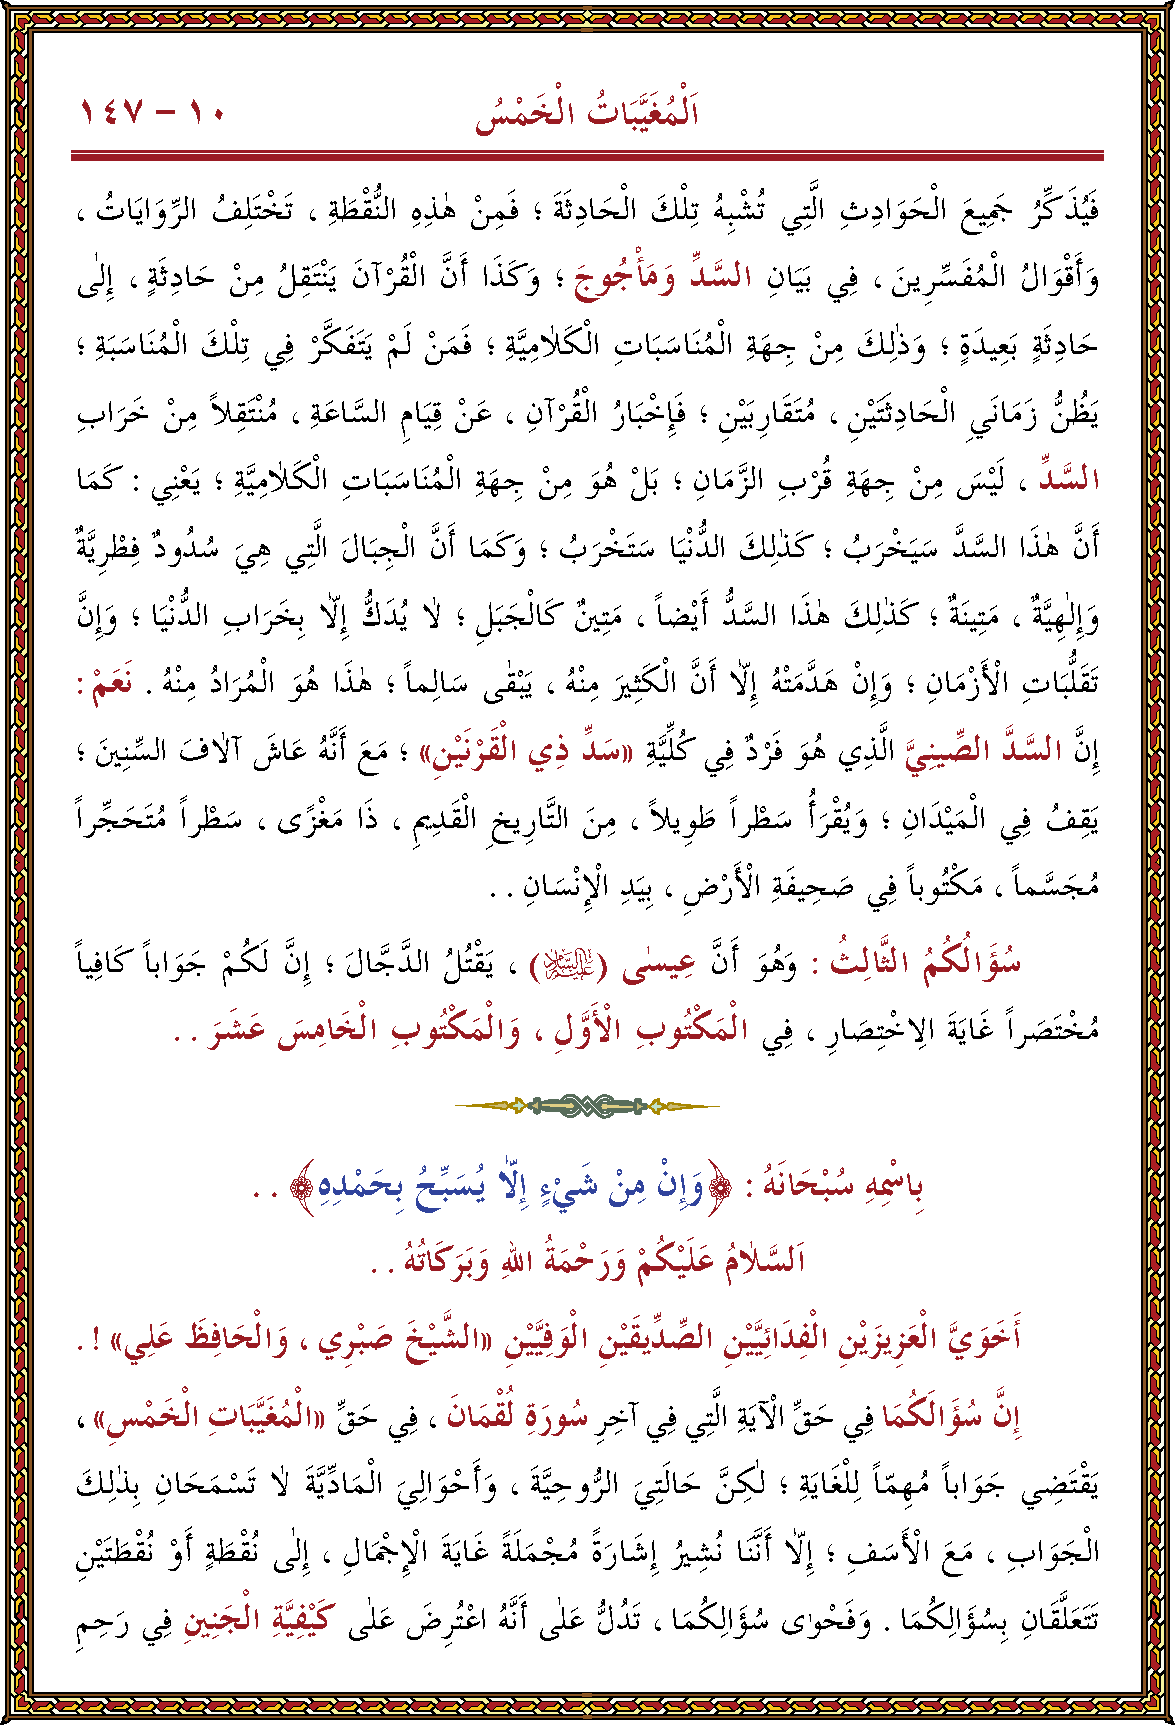 اَلْمُغَيَّبَاتُ الْخَمْسُ ١٠ – ١٤٧
فَيُذَكِّرُ جَمِيعَ الْحَوَادِثِ الَّتِي تُشْبِهُ تِلْكَ الْحَادِثَةَ ؛ فَمِنْ هٰذِهِ النُّقْطَةِ ، تَخْتَلِفُ الرِّوَايَاتُ ،
وَأَقْوَالُ الْمُفَسِّرِينَ ، فِي بَيَانِ السَّدِّ وَمَأْجُوجَ ؛ وَكَذَا أَنَّ الْقُرْآنَ يَنْتَقِلُ مِنْ حَادِثَةٍ ، إِلٰى
حَادِثَةٍ بَعِيدَةٍ ؛ وَذٰلِكَ مِنْ جِهَةِ الْمُنَاسَبَاتِ الْكَلَامِيَّةِ ؛ فَمَنْ لَمْ يَتَفَكَّرْ فِي تِلْكَ الْمُنَاسَبَةِ ؛
يَظُنُّ زَمَانَيِ الْحَادِثَتَيْنِ ، مُتَقَارِبَيْنِ ؛ فَإِخْبَارُ الْقُرْآنِ ، عَنْ قِيَامِ السَّاعَةِ ، مُنْتَقِلاً مِنْ خَرَابِ
السَّدِّ ، لَيْسَ مِنْ جِهَةِ قُرْبِ الزَّمَانِ ؛ بَلْ هُوَ مِنْ جِهَةِ الْمُنَاسَبَاتِ الْكَلَامِيَّةِ ؛ يَعْنِي : كَمَا
أَنَّ هٰذَا السَّدَّ سَيَخْرَبُ ؛ كَذٰلِكَ الدُّنْيَا سَتَخْرَبُ ؛ وَكَمَا أَنَّ الْجِبَالَ الَّتِي هِيَ سُدُودٌ فِطْرِيَّةٌ
وَإِلٰهِيَّةٌ ، مَتِينَةٌ ؛ كَذٰلِكَ هٰذَا السَّدُّ أَيْضاً ، مَتِينٌ كَالْجَبَلِ ؛ لَا يُدَكُّ إِلَّا بِخَرَابِ الدُّنْيَا ؛ وَإِنَّ
تَقَلُّبَاتِ الْأَزْمَانِ ؛ وَإِنْ هَدَّمَتْهُ إِلَّا أَنَّ الْكَثِيرَ مِنْهُ ، يَبْقٰى سَالِماً ؛ هٰذَا هُوَ الْمُرَادُ مِنْهُ . نَعَمْ :
إِنَّ السَّدَّ الصِّينِيَّ الَّذِي هُوَ فَرْدٌ فِي كُلِّيَّةِ «سَدِّ ذِي الْقَرْنَيْنِ» ؛ مَعَ أَنَّهُ عَاشَ آلَافَ السِّنِينَ ؛
يَقِفُ فِي الْمَيْدَانِ ؛ وَيُقْرَأُ سَطْراً طَوِيلاً ، مِنَ التَّارِيخِ الْقَدِيمِ ، ذَا مَغْزًى ، سَطْراً مُتَحَجِّراً
مُجَسَّماً ، مَكْتُوباً فِي صَحِيفَةِ الْأَرْضِ ، بِيَدِ الْإِنْسَانِ . .
سُؤَالُكُمُ الثَّالِثُ : وَهُوَ أَنَّ عِيسٰى (عَلَيْهِ السَّلَامُ) ، يَقْتُلُ الدَّجَّالَ ؛ إِنَّ لَكُمْ جَوَاباً كَافِياً
مُخْتَصَراً غَايَةَ الِاخْتِصَارِ ، فِي الْمَكْتُوبِ الْأَوَّلِ ، وَالْمَكْتُوبِ الْخَامِسَ عَشَرَ . .
بِاسْمِهِ سُبْحَانَهُ : ﴿وَإِنْ مِنْ شَيْءٍ إِلَّا يُسَبِّحُ بِحَمْدِهِ﴾ . .
اَلسَّلَامُ عَلَيْكُمْ وَرَحْمَةُ اللهِ وَبَرَكَاتُهُ . .
أَخَوَيَّ الْعَزِيزَيْنِ الْفِدَائِيَّيْنِ الصِّدِّيقَيْنِ الْوَفِيَّيْنِ «الشَّيْخَ صَبْرِي ، وَالْحَافِظَ عَلِي» ! .
إِنَّ سُؤَالَكُمَا فِي حَقِّ الْآيَةِ الَّتِي فِي آخِرِ سُورَةِ لُقْمَانَ ، فِي حَقِّ «الْمُغَيَّبَاتِ الْخَمْسِ» ،
يَقْتَضِي جَوَاباً مُهِمّاً لِلْغَايَةِ ؛ لٰكِنَّ حَالَتِيَ الرُّوحِيَّةَ ، وَأَحْوَالِيَ الْمَادِّيَّةَ لَا تَسْمَحَانِ بِذٰلِكَ
الْجَوَابِ ، مَعَ الْأَسَفِ ؛ إِلَّا أَنَّنَا نُشِيرُ إِشَارَةً مُجْمَلَةً غَايَةَ الْإِجْمَالِ ، إِلٰى نُقْطَةٍ أَوْ نُقْطَتَيْنِ
تَتَعَلَّقَانِ بِسُؤَالِكُمَا . وَفَحْوٰى سُؤَالِكُمَا ، تَدُلُّ عَلٰى أَنَّهُ اعْتُرِضَ عَلٰى كَيْفِيَّةِ الْجَنِينِ فِي رَحِمِ